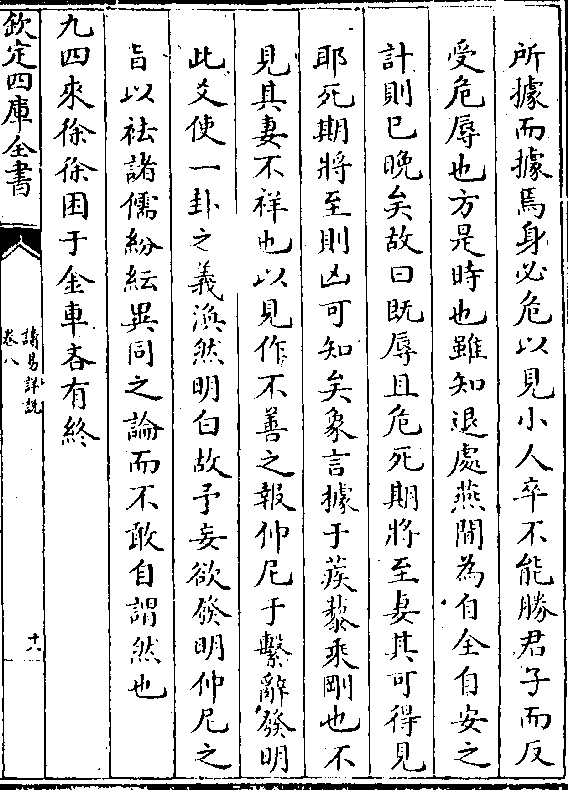 所據而據焉身必危以見小人卒不能勝君子而反
受危辱也方是時也雖知退處燕閒為自全自安之
計則已晚矣故曰既辱且危死期將至妻其可得見
耶死期將至則凶可知矣象言據于蒺藜乘剛也不
見其妻不祥也以見作不善之報仲尼于繫辭發明
此爻使一卦之義渙然明白故予妄欲發明仲尼之
旨以祛諸儒紛紜異同之論而不敢自謂然也
九四來徐徐困于金車吝有終
欽定四庫全書
讀易詳說
卷八
十八